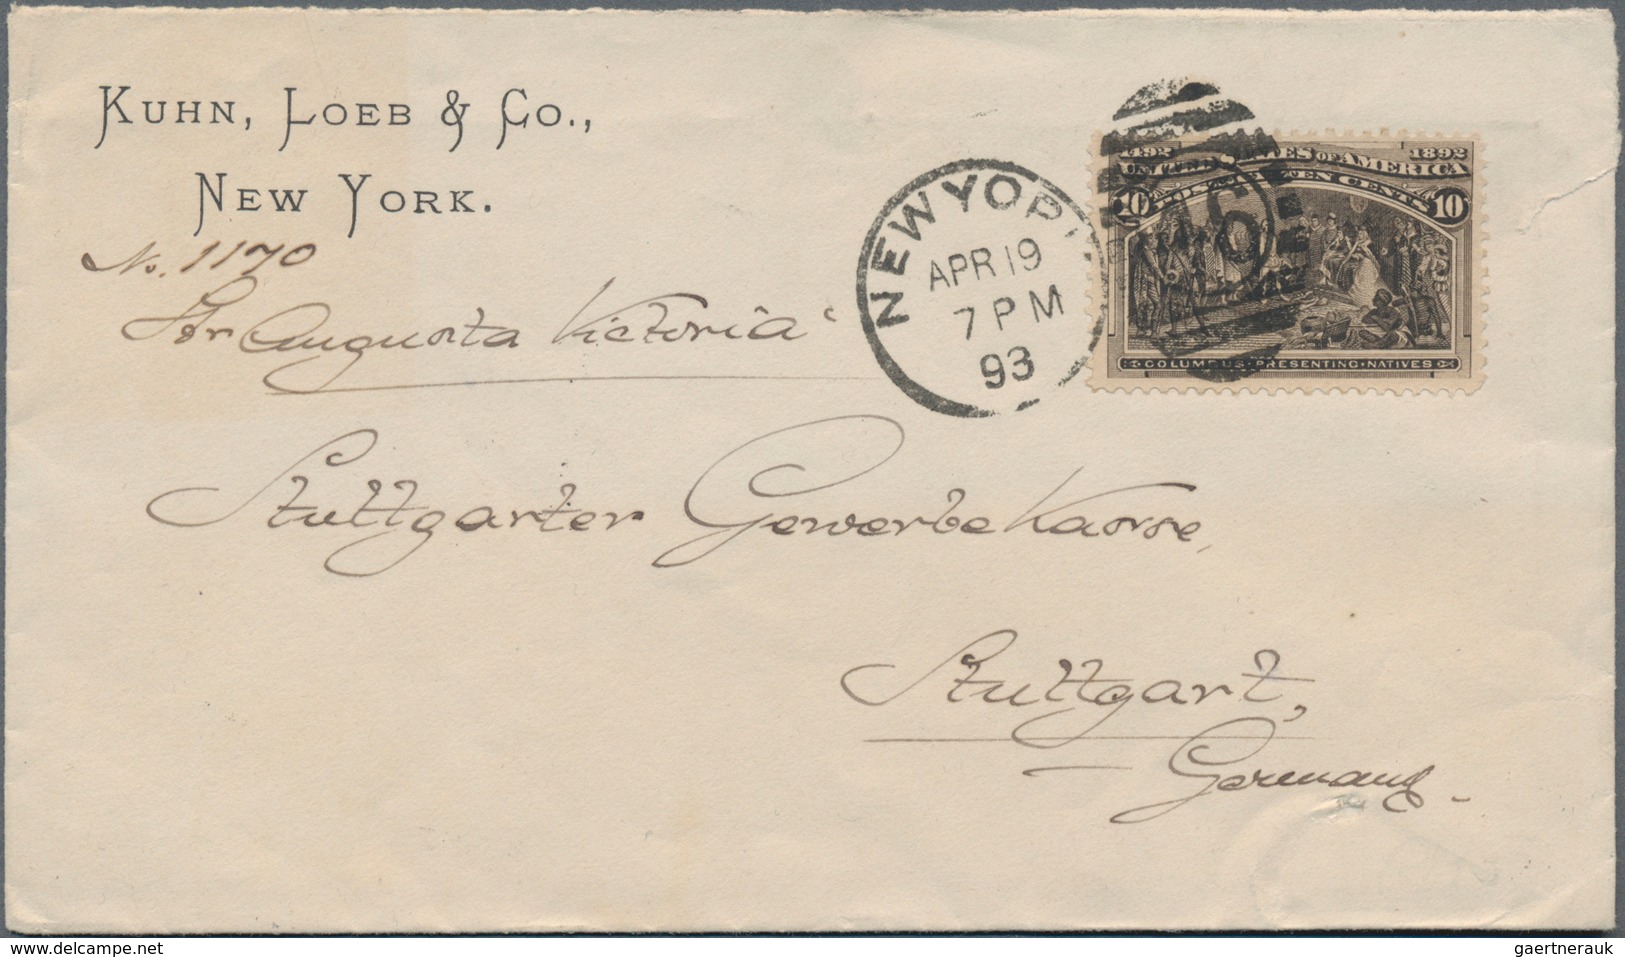 KUHN, LOEB & CO.,
NEW YORK.
No. 1170
Str Augusta Victoria"
NEW YOR
APR 19
7 PM
93
1492 1892
UNITED STATES OF AMERICA
10 POSTAGE TEN CENTS 10
COLUMBUS PRESENTING NATIVES
Stuttgarter Gewerbe Kasse,
Stuttgart,
Germany.
www.delcampe.net
gaertnerauk